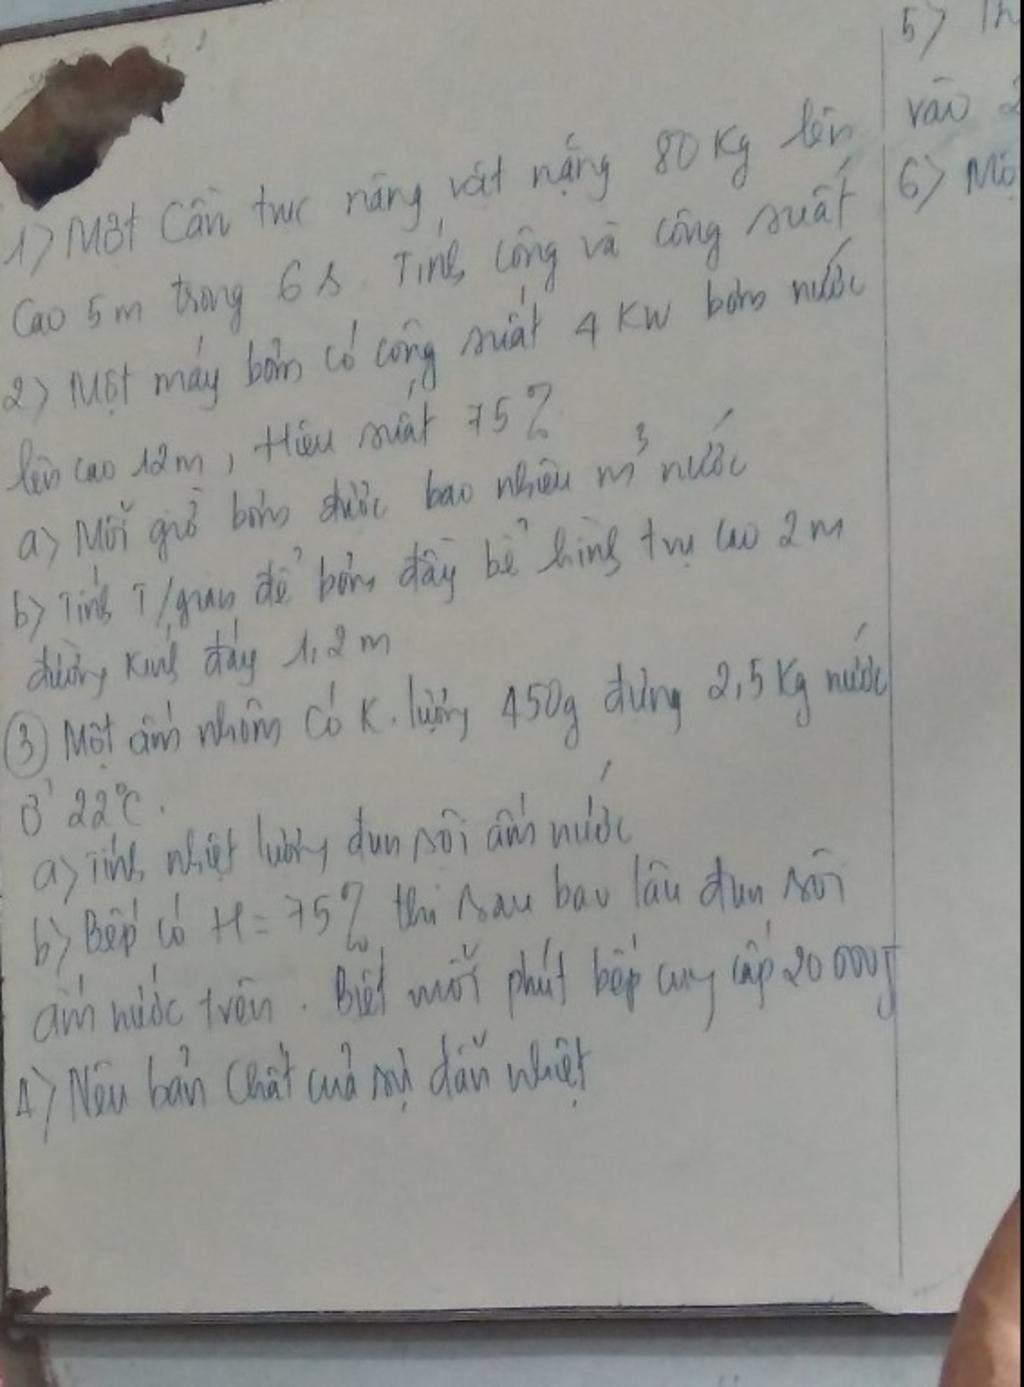 1) Một Cần trục nâng vật nặng 80 Kg lên
Cao 5m trong 6s. Tính công và công suất
2) Một máy bơm có công suất 4 KW bơm nước
lên cao 12m, Hiệu suất 75%
a) Mỗi giờ bơm được bao nhiêu m³ nước
b) Tính T/gian để bơm đầy bể hình trụ cao 2m
đường kính đáy 1,2m
3 Một ấm nhôm có K. lượng 450g đựng 2,5Kg nước
ở 22°C.
a) Tính nhiệt lượng đun sôi ấm nước
b) Bếp có H = 75% thì sau bao lâu đun sôi
ấm nước trên. Biết mỗi phút bếp cung cấp 20 000J
4) Nêu bản chất của sự dẫn nhiệt
5) Th
vào 2
6) Mộ